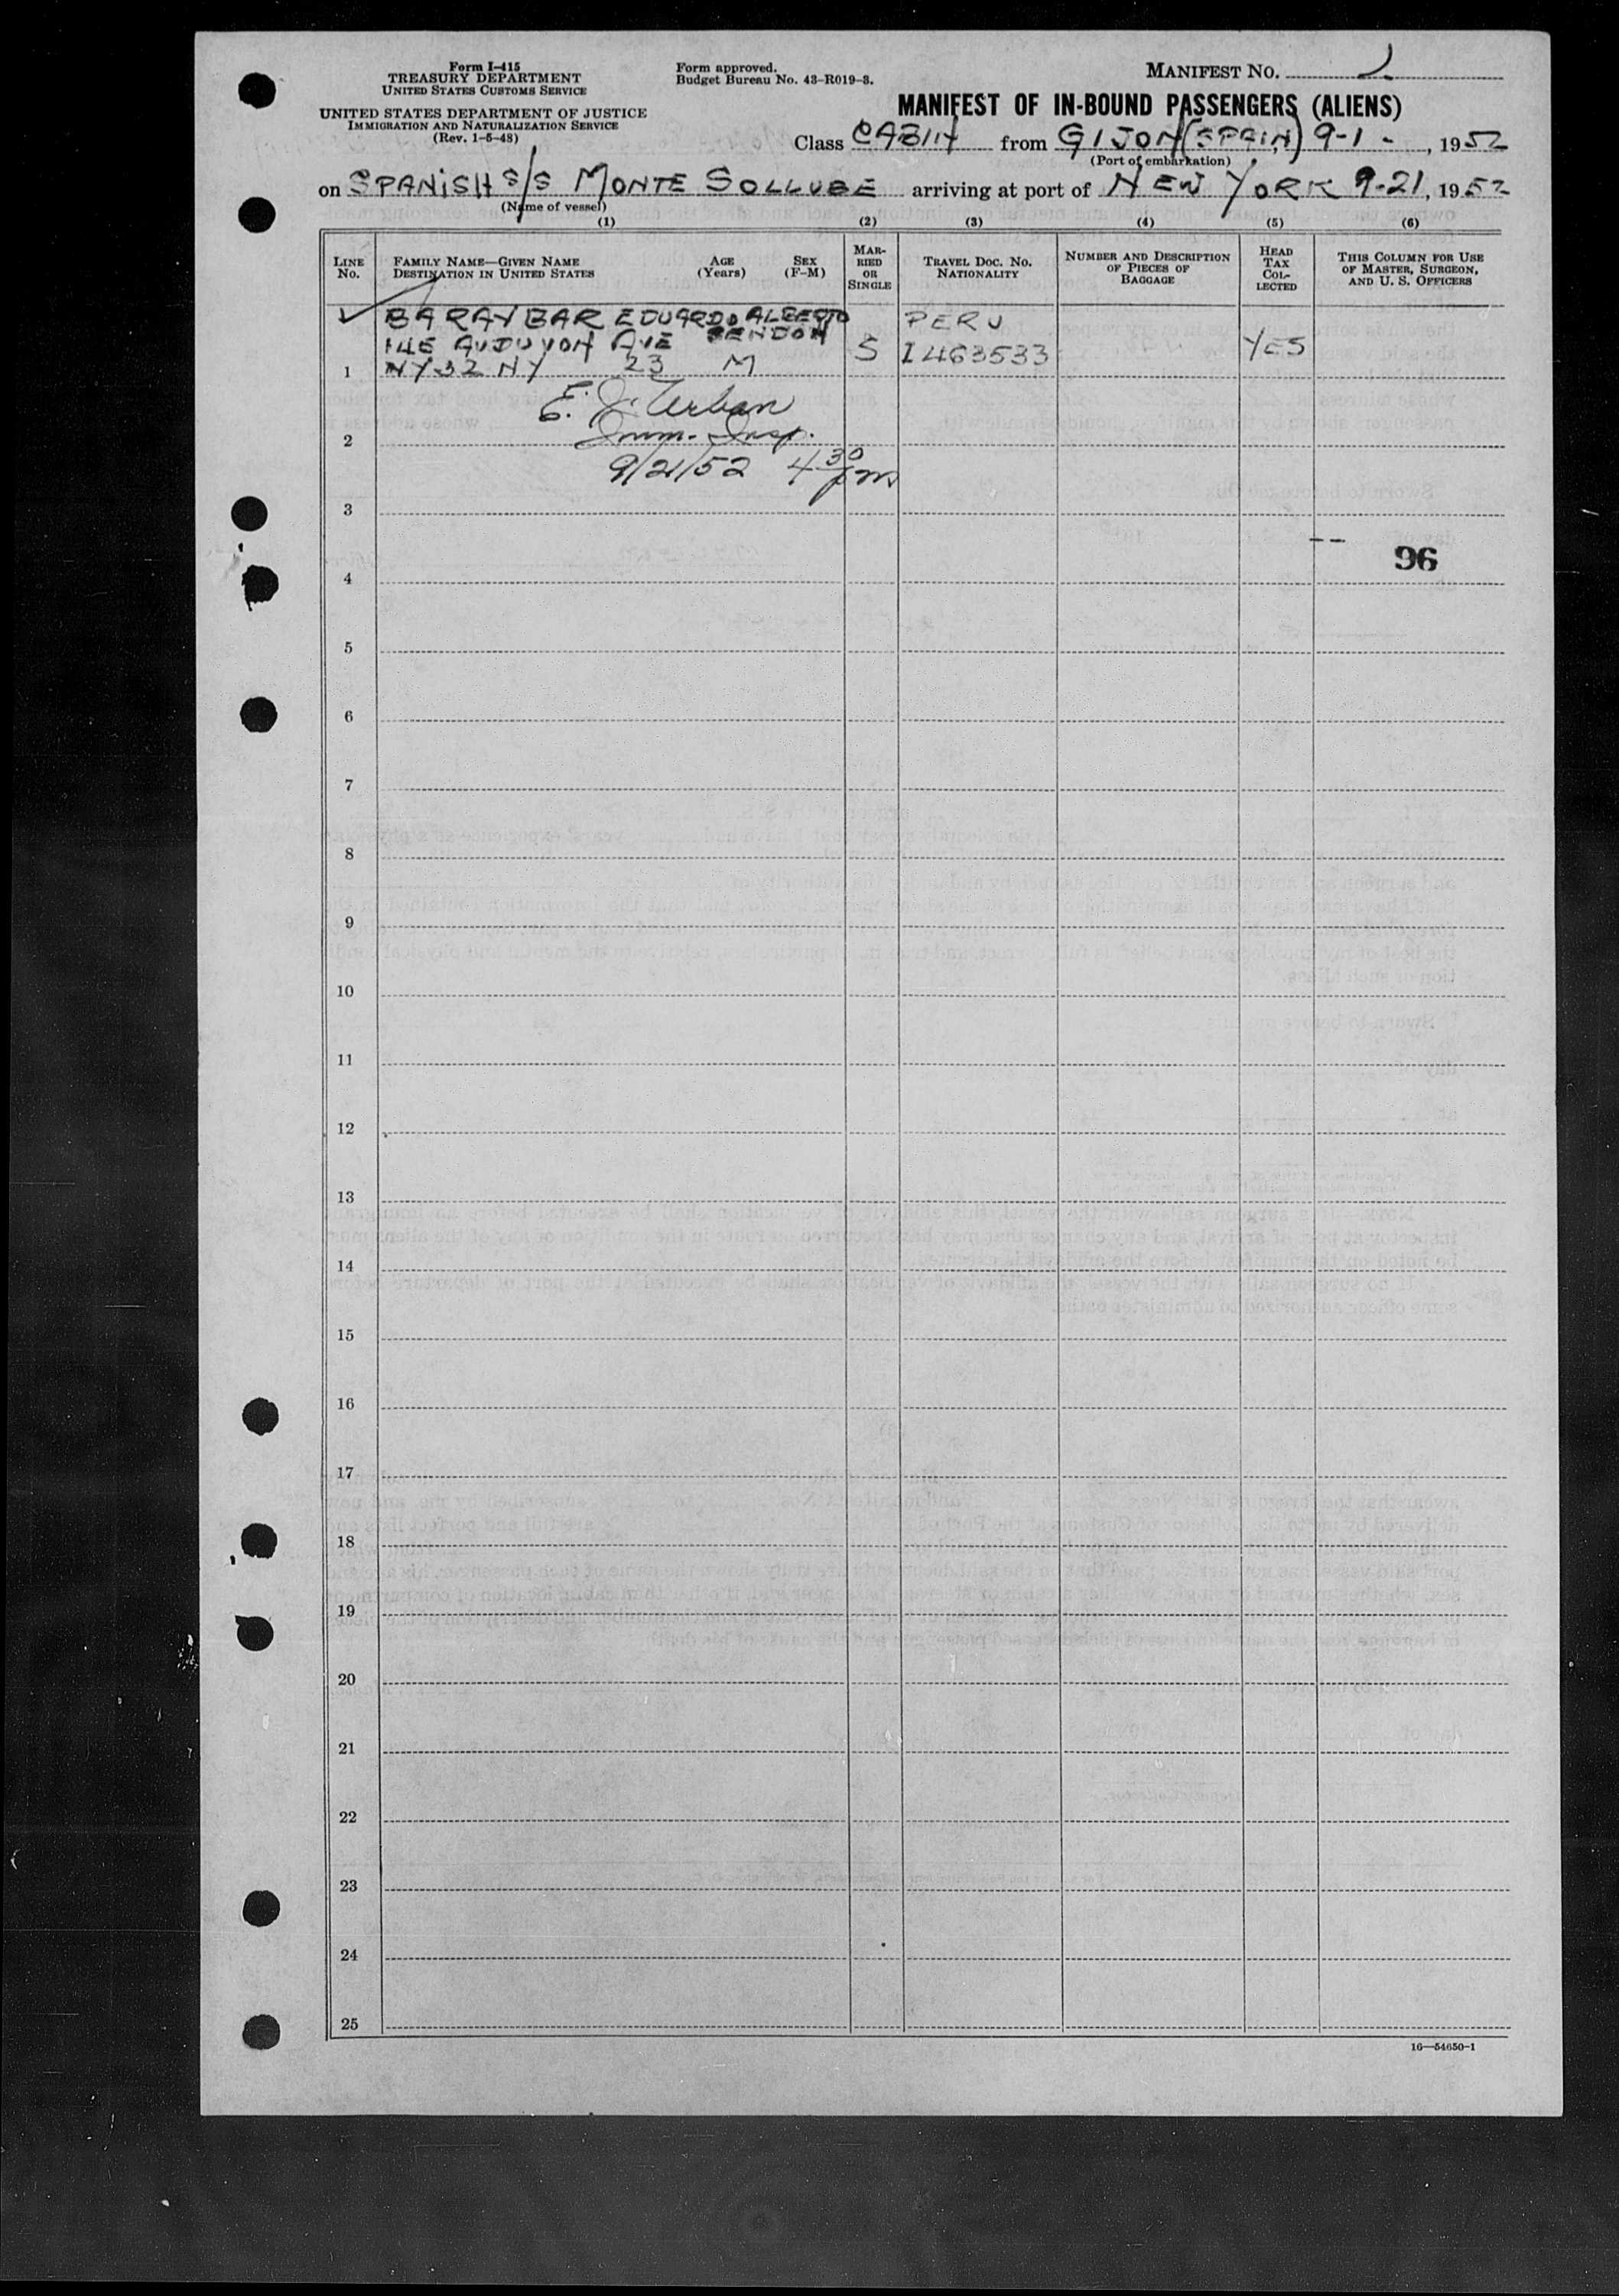 Form I-415
TREASURY DEPARTMENT
UNITED STATES CUSTOMS SERVICE
UNITED STATES DEPARTMENT OF JUSTICE
IMMIGRATION AND NATURALIZATION SERVICE
(Rev. 1-5-48)
Form approved.
Budget Bureau No. 43-R019-3.
MANIFEST NO.
MANIFEST OF IN-BOUND PASSENGERS (ALIENS)
Class CABIN from GIJON (SPAIN) 9-1-, 1952
(Port of embarkation)
on SPANISH S/S MONTE SOLLUBE arriving at port of NEW YORK 9-21, 1952
(Name of vessel)
(1) (2) (3) (4) (5) (6)
LINE No.
FAMILY NAME—GIVEN NAME
DESTINATION IN UNITED STATES
AGE (Years)
SEX (F-M)
MARRIED OR SINGLE
TRAVEL DOC. NO.
NATIONALITY
NUMBER AND DESCRIPTION OF PIECES OF BAGGAGE
HEAD TAX COLLECTED
THIS COLUMN FOR USE OF MASTER, SURGEON, AND U. S. OFFICERS
BARAYBAR EDUARDO ALBERTO PERU
AUDUVON AVE RENDON S I463533 YES
1 NY 32 NY 23 M
E. J. Urban
2 Imm. Insp.
9/21/52 4 30 pm
3
96
4
5
6
7
8
9
10
11
12
13
14
15
16
17
18
19
20
21
22
23
24
25
16—54650-1